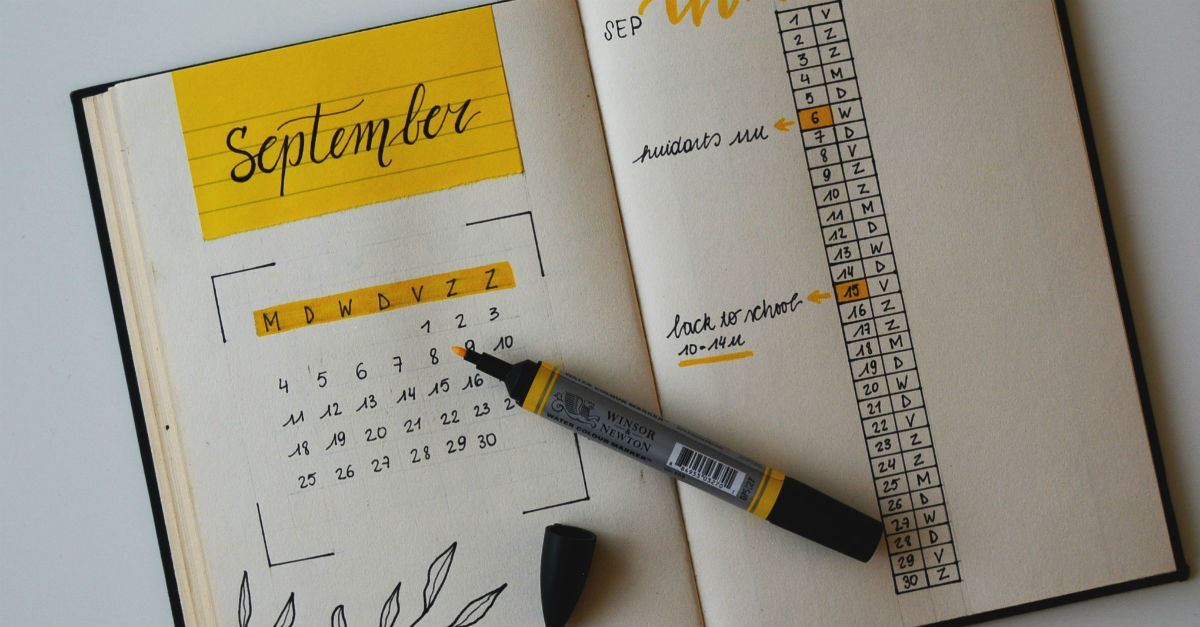 September
M D W D V Z Z
1 2 3
4 5 6 7 8 9 10
11 12 13 14 15 16
18 19 20 21 22 23
25 26 27 28 29 30
SEP
1 V
2 Z
3 Z
4 M
5 D
6 W
7 D
8 V
9 Z
10 Z
11 M
12 D
13 W
14 D
15 V
16 Z
17 Z
18 M
19 D
20 W
21 D
22 V
23 Z
24 Z
25 M
26 D
27 W
28 D
29 V
30 Z
huidarts
back to school
10-14u
WINSOR
&
NEWTON
WATER COLOUR MARKER